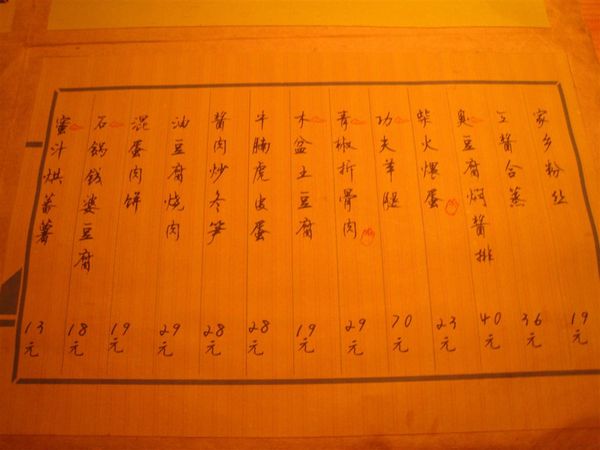 家乡粉丝 19元
酱合蒸 36元
臭豆腐焖酱排 40元
柴火煨蛋 23元
功夫羊腿 70元
青椒拆骨肉 29元
木盆土豆腐 19元
牛腩虎皮蛋 28元
酱肉炒冬笋 28元
油豆腐烧肉 29元
混蛋肉饼 19元
石锅钱婆豆腐 18元
蜜汁烘蕃薯 13元